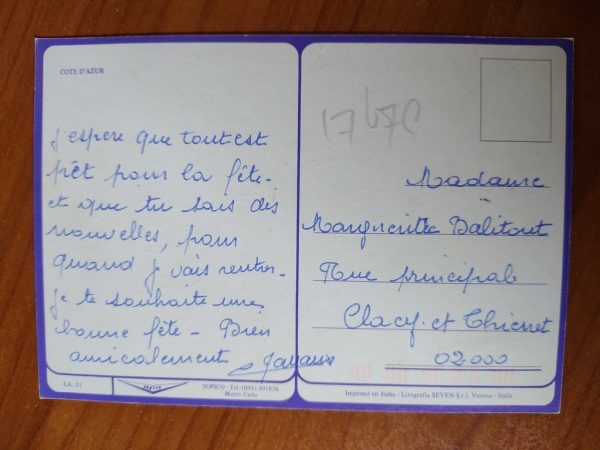 COTE D'AZUR
j'espere que tout est
prêt pour la fête -
et que tu sais des
nouvelles, pour
quand je vais rentrer -
je te souhaite une
bonne fête - Bien
amicalement
Madame
Marguerite Balitout
Rue principal
Clacy et Thierret
02000
Ln. 31
SOPICO - Tel. (093) 301826
Monte Carlo
Imprimé en Italie - Litografia SEVEN S.r.l. Verona - Italia